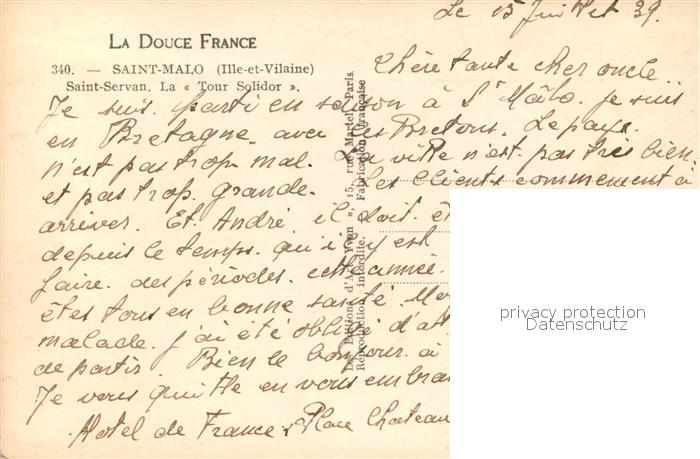 Le 15 Juillet 39.
LA DOUCE FRANCE
340. — SAINT-MALO (Ille-et-Vilaine)
Saint-Servan. La « Tour Solidor ».
Chère tante cher oncle.
Je suis parti en saison à St Mâlo. je suis
en Bretagne. avec les Bretons. Le pays.
n'est pas trop mal. La ville n'est pas très bien
et pas trop grande. Les clients commencent à
arriver. Et André. il doit
depuis le temps. qu'il y est
faire. des périodes. cette année.
êtes tous en bonne santé.
malade. j'ai été obligé
de partir. Bien le bonjour. à
Je vous quitte en vous
Hotel de France. Place Chateau
Les Editions d'Art « Yvon », 15, rue Martel, Paris
Reproduction interdite. Fabrication française
privacy protection
Datenschutz